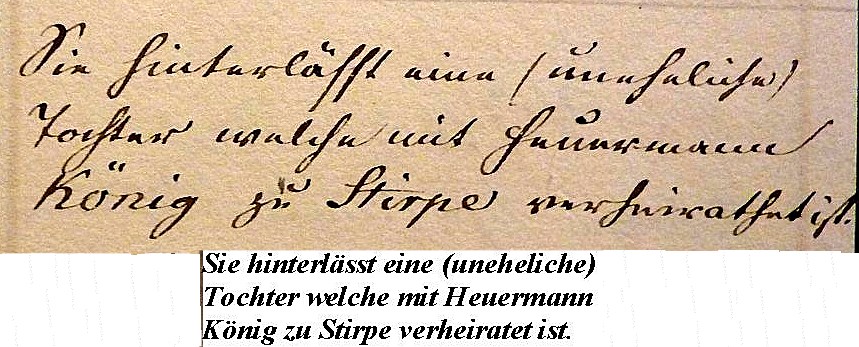 Sie hinterläßt eine (uneheliche)
Tochter welche mit Heuermann
König zu Stirpe verheirathet ist.
Sie hinterlässt eine (uneheliche)
Tochter welche mit Heuermann
König zu Stirpe verheiratet ist.